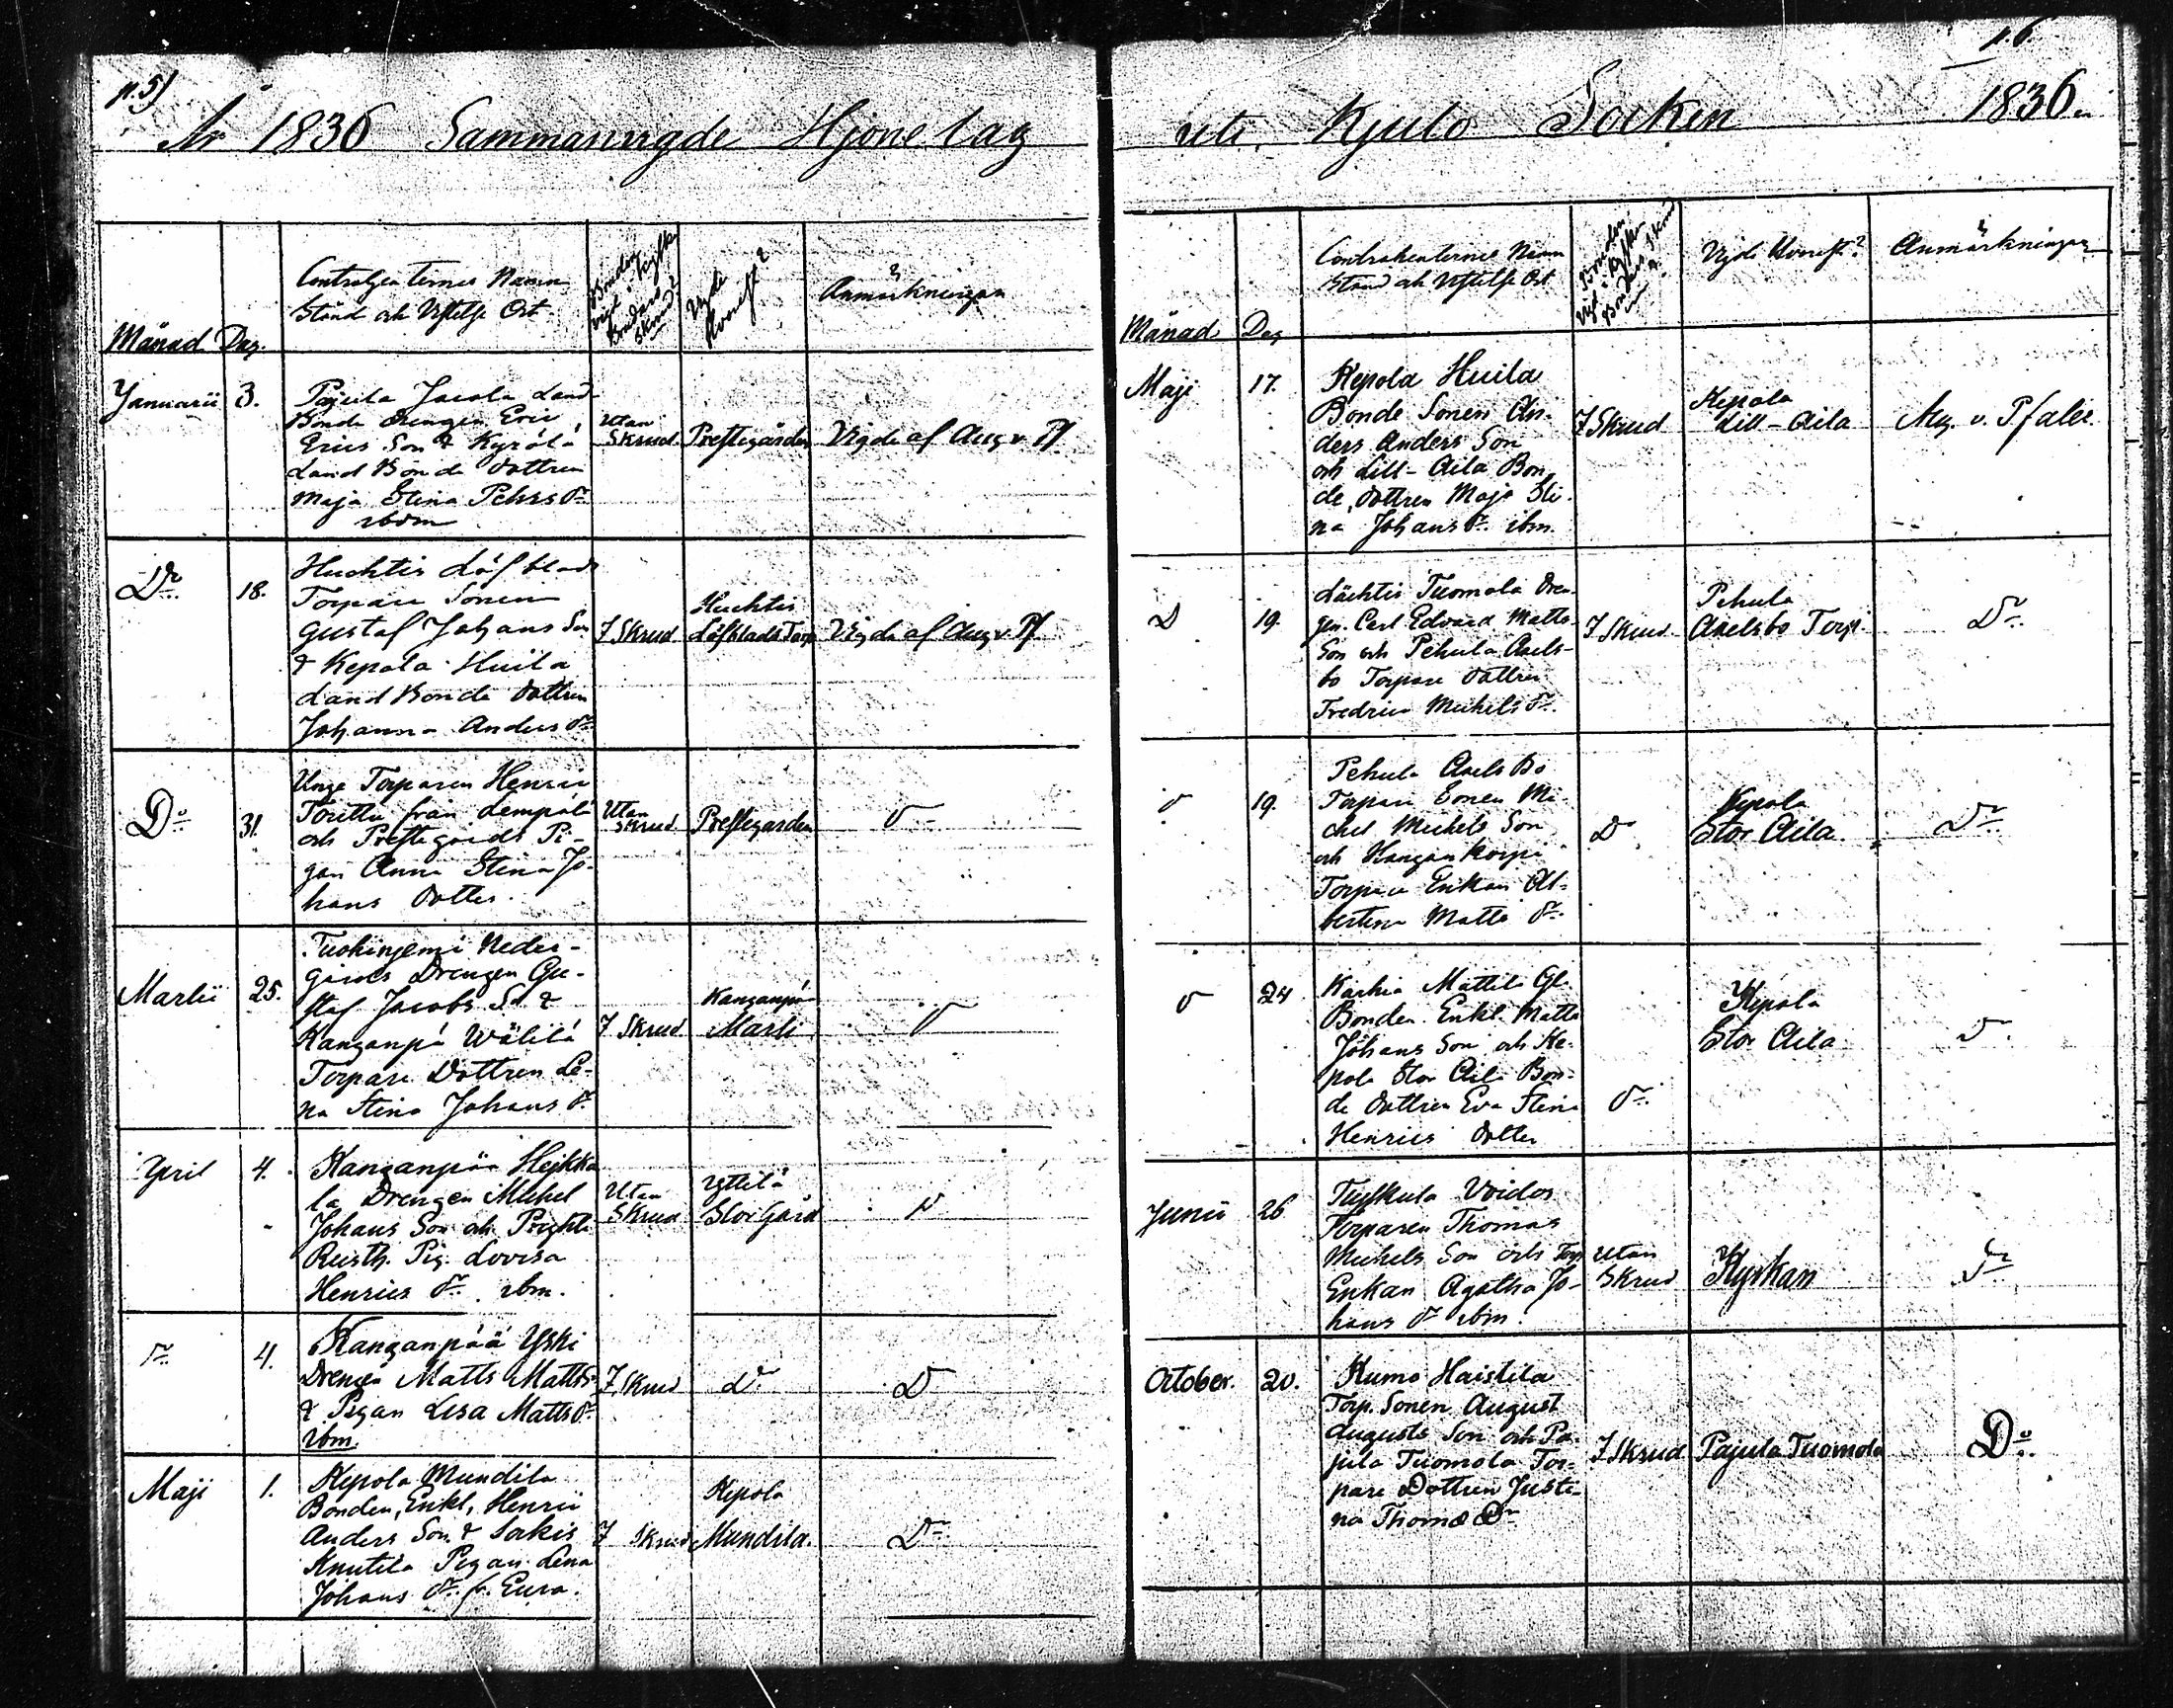 p. 5)
År 1836 Sammanvigde Hjonelag
Månad
Dag.
Contrahenternes Namn
Stånd och Vistelse Ort
Vigde
Hvarest?
Anmärkningar
Januarii
3.
Pajula Jacola Land
Bonde Drengen Eric
Erics Son & Kyrölä
Land Bonde Dottren
Maja Stina Pehrs Dr
ibdm
Utan
Skrud
Prestegården
Vigde af Aug v. Pf
Dr
18.
Huchtis Löfblads
Torpare Sonen
Gustaf Johans Son
& Kepola Huila
Land Bonde Dottren
Johanna Anders Dr
I Skrud
Huchtis
Löfblads Torp
Vigde af Aug v. Pf
Do
31.
Unge Torparen Henric
från Lempälä
och Prestegårds Pi-
gan Anna Stina Jo-
hans Dotter.
Utan
Skrud
Prestegården
D
Martii
25.
Tuohiniemi Neder-
gårds Drengen Gu-
staf Jacobs S. &
Kanganpä Wälilä
Torpare Dottren Le-
na Stina Johans D.
I Skrud
Kanganpä
Marli
D
April
4.
Kanganpää Hejkki
la Drengen Michel
Johans Son och
Rusth. Pig. Lovisa
Henrics Dr ibm.
Utan
Skrud
Yttilä
Stor Gård
D
Dr
4.
Kanganpää Yski
Drengen Matts Matts
& Pigan Lisa Matts Dr
ibm.
I Skrud
D
D
Maji
1.
Kepola Mundila
Bonden, Enkl, Henric
Anders Son & Sorkis
Knutila Pigan Lena
Johans Dr fr. Eura.
I Skrud
Kepola
Mundila.
Dr
p. 6.
uti Kjulo Socken 1836.
Månad
Dag
Contrahenternes Namn
Stånd och Vistelse Ort
Vigde Hvarest?
Anmärkningar
Maji
17.
Kepola Huila
Bonde Sonen An-
ders Anders Son
och Lill-Aila Bon
de Dottren Maja Sti-
na Johans Dr ibm.
I Skrud
Kepola
Lill-Aila
Aug. v. Pfaler.
D
19.
Lächtis Tuomola Dren-
gen Carl Edvard Matts
Son och Pehula Axels-
bo Torpare Dottren
Fredrica Michels Dr
I Skrud
Pehula
Axelsbo Torp.
Dr
D
19.
Pehula Axels Bo
Torpare Sonen Mi-
chel Michels Son
och Hangankorpi
Torpare Enkan Al-
bertina Matts Dr
D
Kepola
Stor Aila.
Dr
D
24
Karhia Mattila Gl.
Bonden Enkl. Matts
Johans Son och Ke-
pola Stor Aila Bon-
de Dottren Eva Stina
Henrics Dotter
Dr
Kepola
Stor Aila
D
Junii
26
Tuiskula Voidos
Torparen Thomas
Michels Son och Torp
Enkan Agatha Jo-
hans D ibm.
Utan
Skrud
Kyrkan
Dr
October.
20.
Kumo Haistila
Torp. Sonen August
Augusts Son och Pa-
jula Tuomola Tor-
pare Dottren Justi-
na Thomæ Dr
I Skrud
Pajula Tuomola
Do